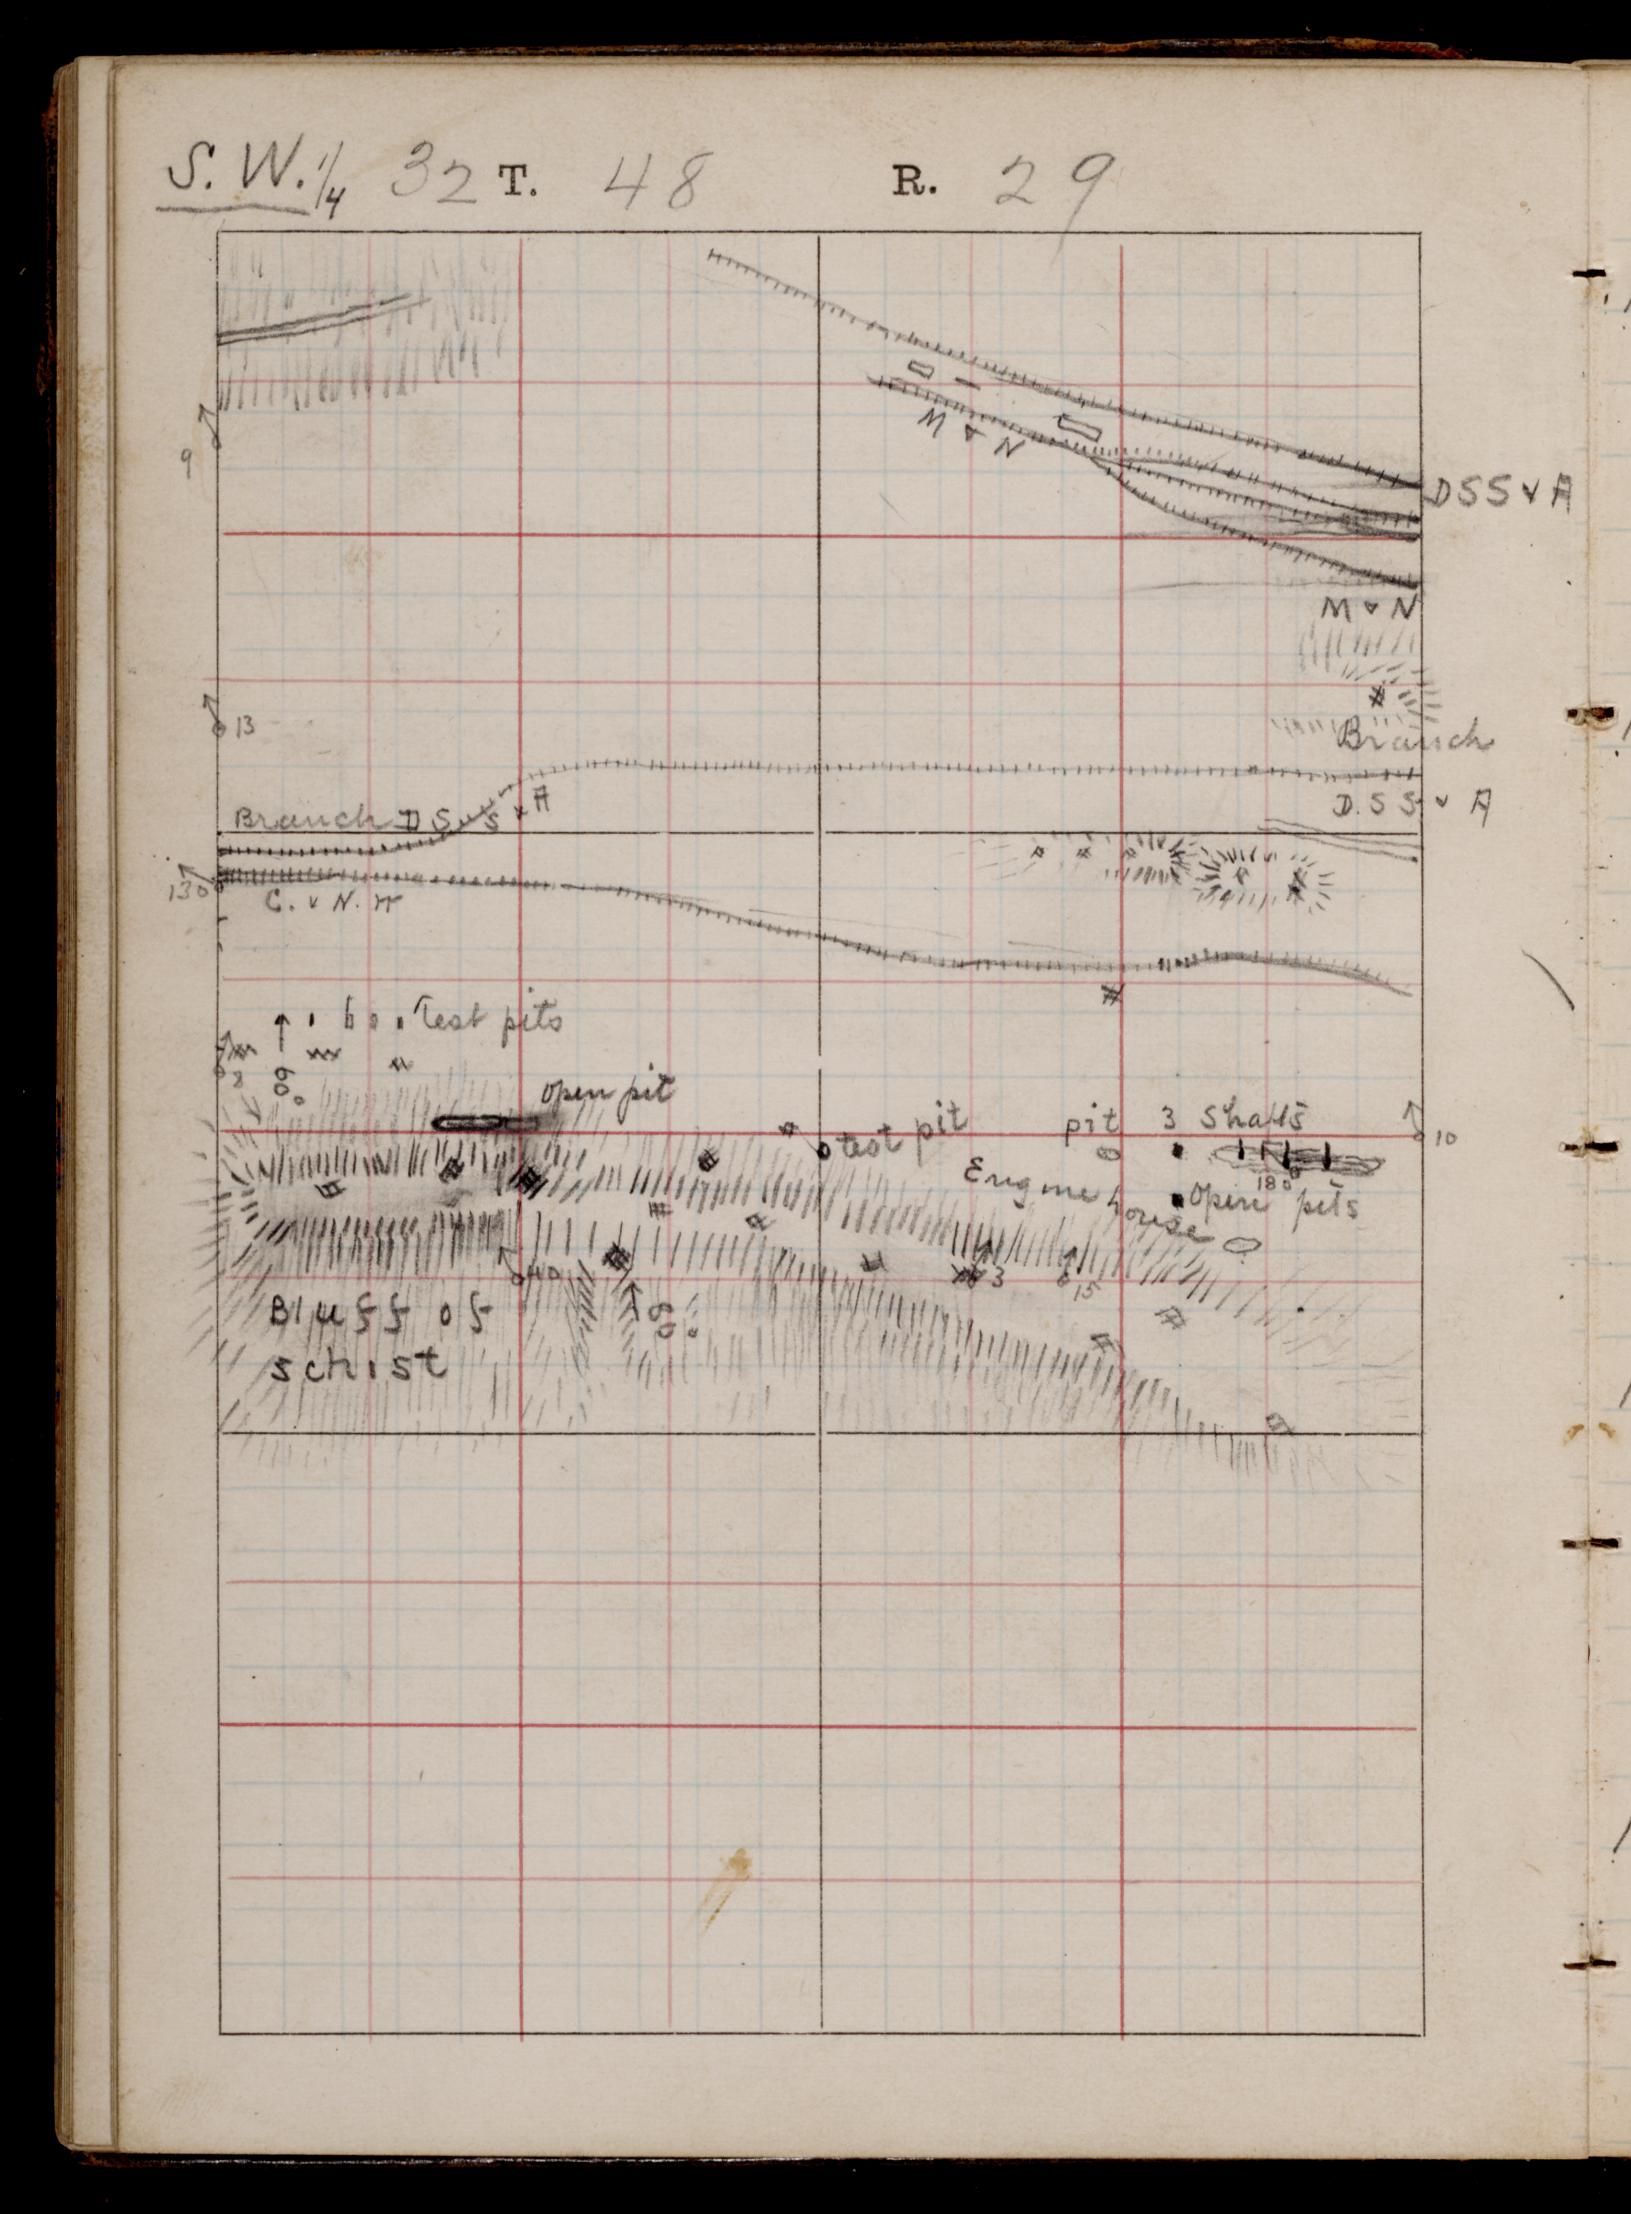 S. W. 1/4 32 T. 48 R. 29
M & N
9
DSS & A
M & N
13
Branch
Branch D S S & A
D. S S & A
130
C. & N. W
Test pits
8
60°
open pit
test pit
pit 3 Shafts
10
180°
Engine house
Open pits
40
3
15
60°
Bluff of
schist